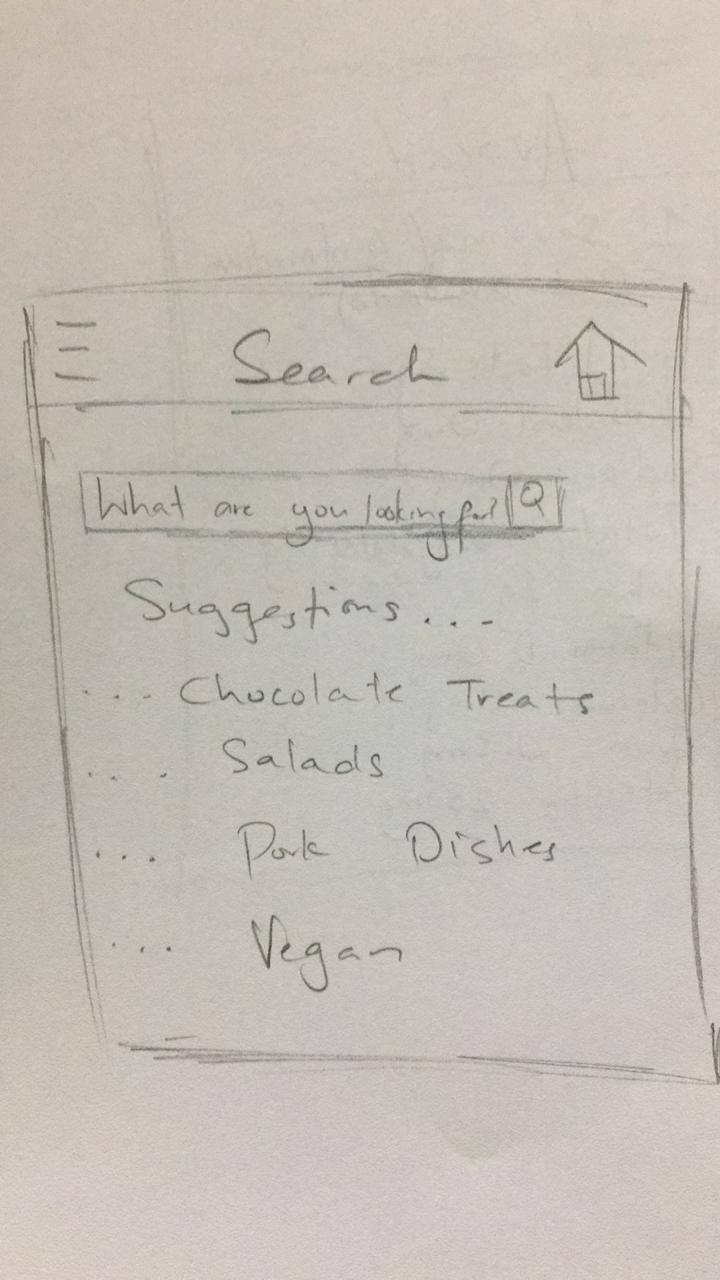 Search
What are you looking for?
Suggestions...
... Chocolate Treats
... Salads
... Pork Dishes
... Vegan